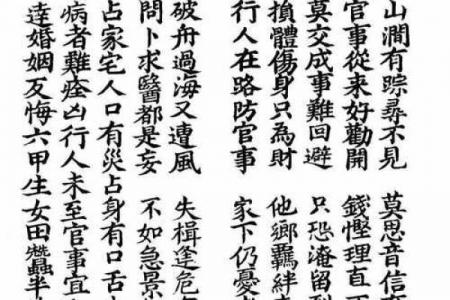 山澗有踪尋不見 莫思音信
官事從来好勸開 錢慳理直
莫交成事難回避 只恐淹留
損體傷身只為財 他鄉羈絆
行人在路防官事 家下仍憂
破舟過海又遭風 失楫逢危
問卜求醫都是妄 不如急景
占家宅人口有災占身有口舌
病者難痊凶行人未至官事宜
達婚姻反悔六甲生女田蠶半